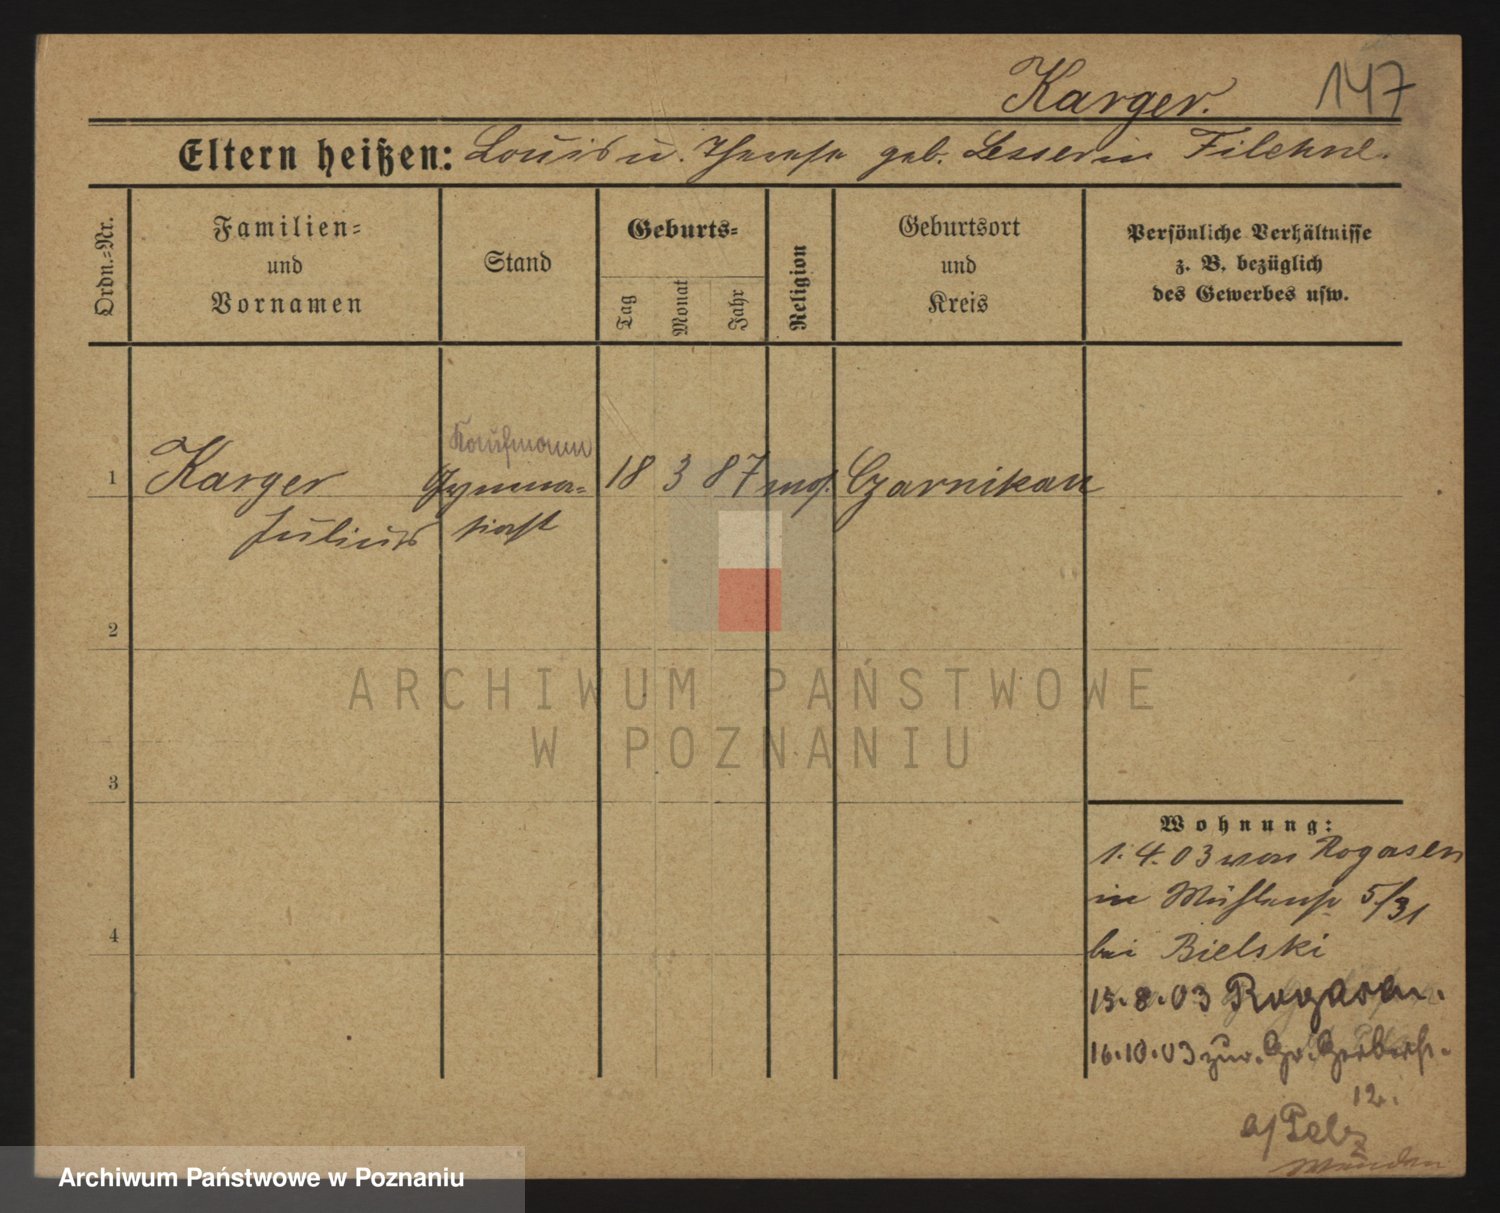 Karger. 147
Eltern heißen: Louis u. Therese geb. Lesser in Filehne.
Ordn.-Nr.
Familien-
und
Vornamen
Stand
Geburts-
Tag
Monat
Jahr
Religion
Geburtsort
und
Kreis
Persönliche Verhältnisse
z. B. bezüglich
des Gewerbes usw.
Kaufmann
1 Karger Gymna- 18 3 87 mos. Czarnikau
Julius siast
2
ARCHIWUM PAŃSTWOWE
W POZNANIU
3
Wohnung:
1.4.03 von Rogasen
in Mühlenstr 5/31
bei Bielski
4
15.8.03 Rogasen.
16.10.03 zur. Gr. Gerberstr.
12.
b/Pelz
Archiwum Państwowe w Poznaniu